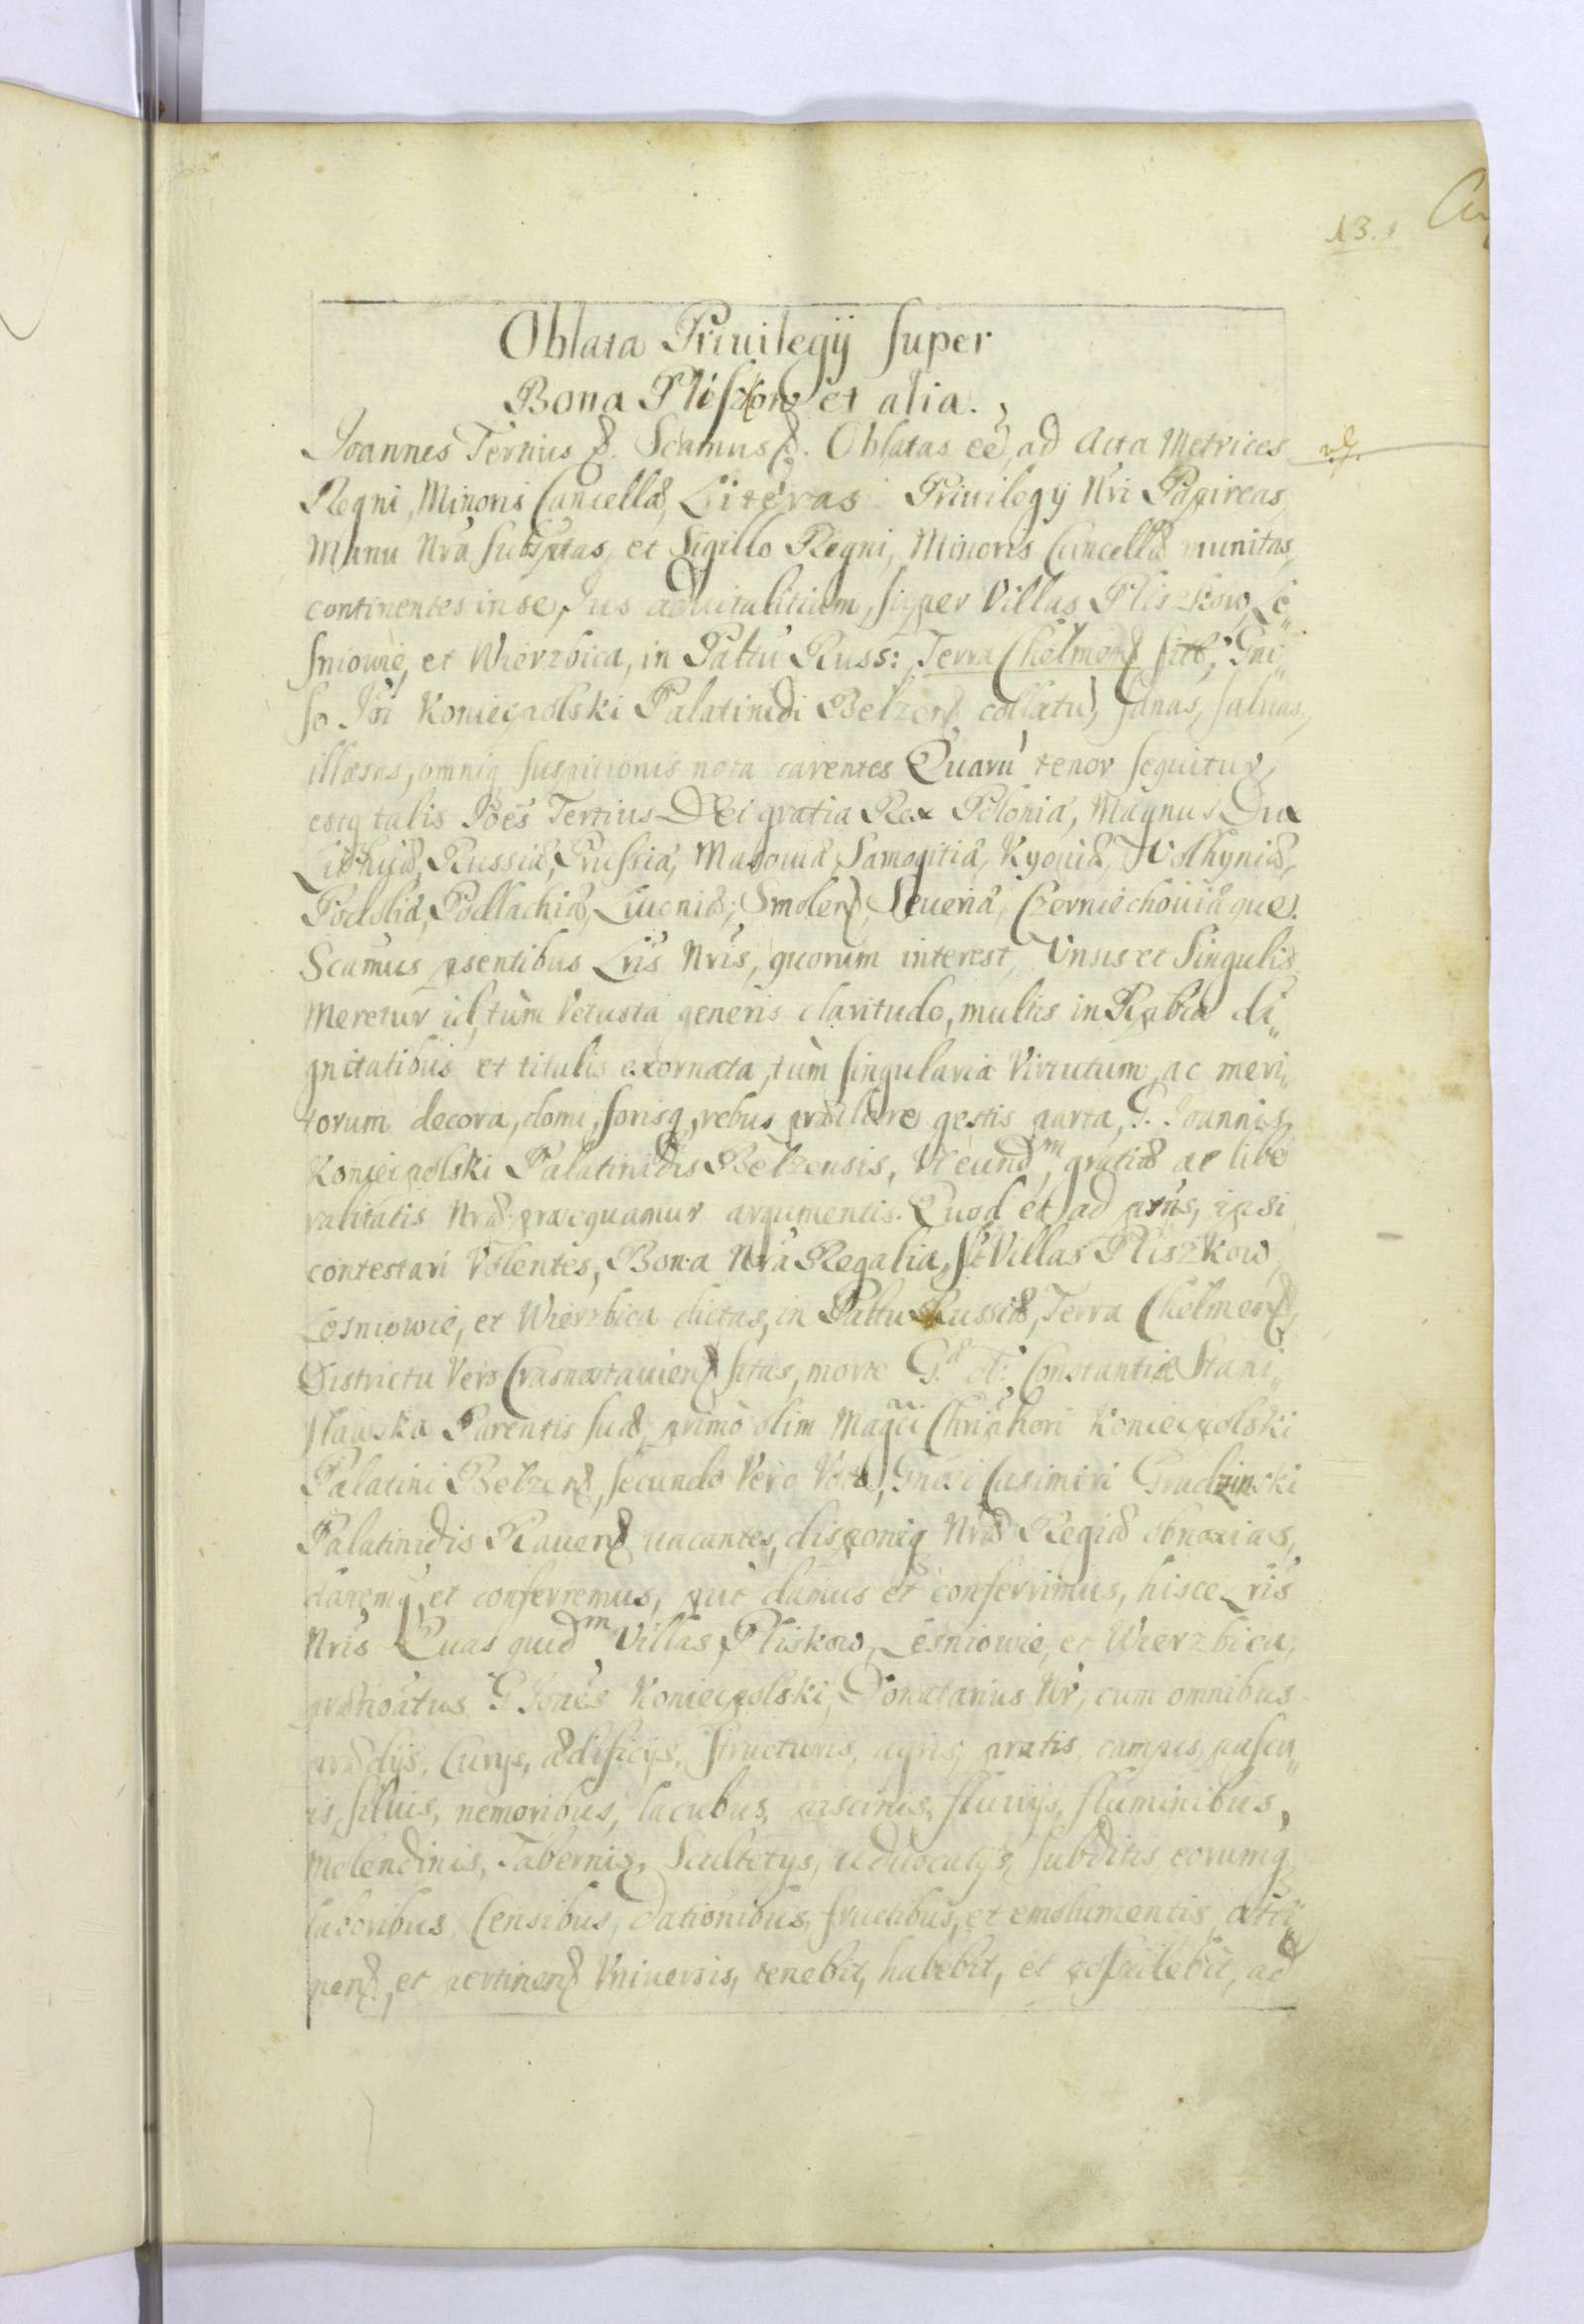 13.
Oblata Priuilegij super
Bona Pliszkow et alia.
Joannes Tertius &. Scamus &. Oblatas eē, ad Acta Metrices
Regni, Minoris Cancellæ, Literas Priuilegij Nri Papireas
Manu Nra subsptas, et Sigillo Regni, Minoris Cancellæ munitas,
continentes in se, Jus aduitalitium, super Villas Pliszkow, Le„
sniowie, et Wierzbica, in Paltu Russ: Terra Chelmen sitt, Gni„
so Joi Koniecpolski Palatinidi Belzen collatū, sanas, saluas,
illæsas, omniq suspicionis nota carentes Quarū tenor sequitur,
estq talis Joēs Tertius Dei gratia Rex Poloniæ, Magnus Dux
Lithuæ, Russiæ, Prussiæ, Masouiæ, Samogitiæ, Kyouiæ, Volhyniæ,
Podoliæ, Podlachiæ, Liuoniæ, Smolen, Seueriæ, Czerniechouiæ que.
Scamus psentibus Lris Nris, quorum interest, Vnsis et Singulis
Meretur id, tùm Vetusta generis claritudo, multis in Rpbca di„
gnitatibus et titulis exornata, tùm singularia Virtutum, ac meri„
torum decora, domi, forisq, rebus præclare gestis parta, G. Joannis
Koniecpolski Palatinidis Belzensis, Vt eundm, gratiæ ac libe
ralitatis Nræ prosequamur argumentis. Quod et ad prns, ipsi
contestari Volentes, Bona Nra Regalia, st Villas Pliszkow,
Lesniowie, et Wierzbica dictas, in Paltu Russiæ, Terra Chelmen,
Districtu Vero Crasnostauien sitas, morte G. ol: Constantiæ Stani„
slawska Parentis suæ, primò olim Magci Chrisphori Koniecpolski
Palatini Belzen, secundo Vero Voto, Gnosi Casimiri Grudzinski
Palatinidis Rauen uacantes, disponiq Nræ Regiæ obnoxias,
daremq, et conferremus, put damus et conferrimus, hisce Lris
Nris Quas quidm Villas, Pliskow, Lesniowie, et Wierzbica,
prætioatus G Joaēs Koniecpolski, Donatarius Nr, cum omnibus
prædijs, Curijs, ædificijs, structuris, agris, pratis, campis, pascu„
is, siluis, nemoribus, lacubus, piscinis, fluuijs, fluminibus,
Molendinis, Tabernis, Scultetijs, aduocatijs, subditis, eorumq
laboribus, Censibus, dationibus, fructibus, et emolumentis atti„
nen, et pertinen Vniuersis, tenebit, habebit, et possidebit, ad